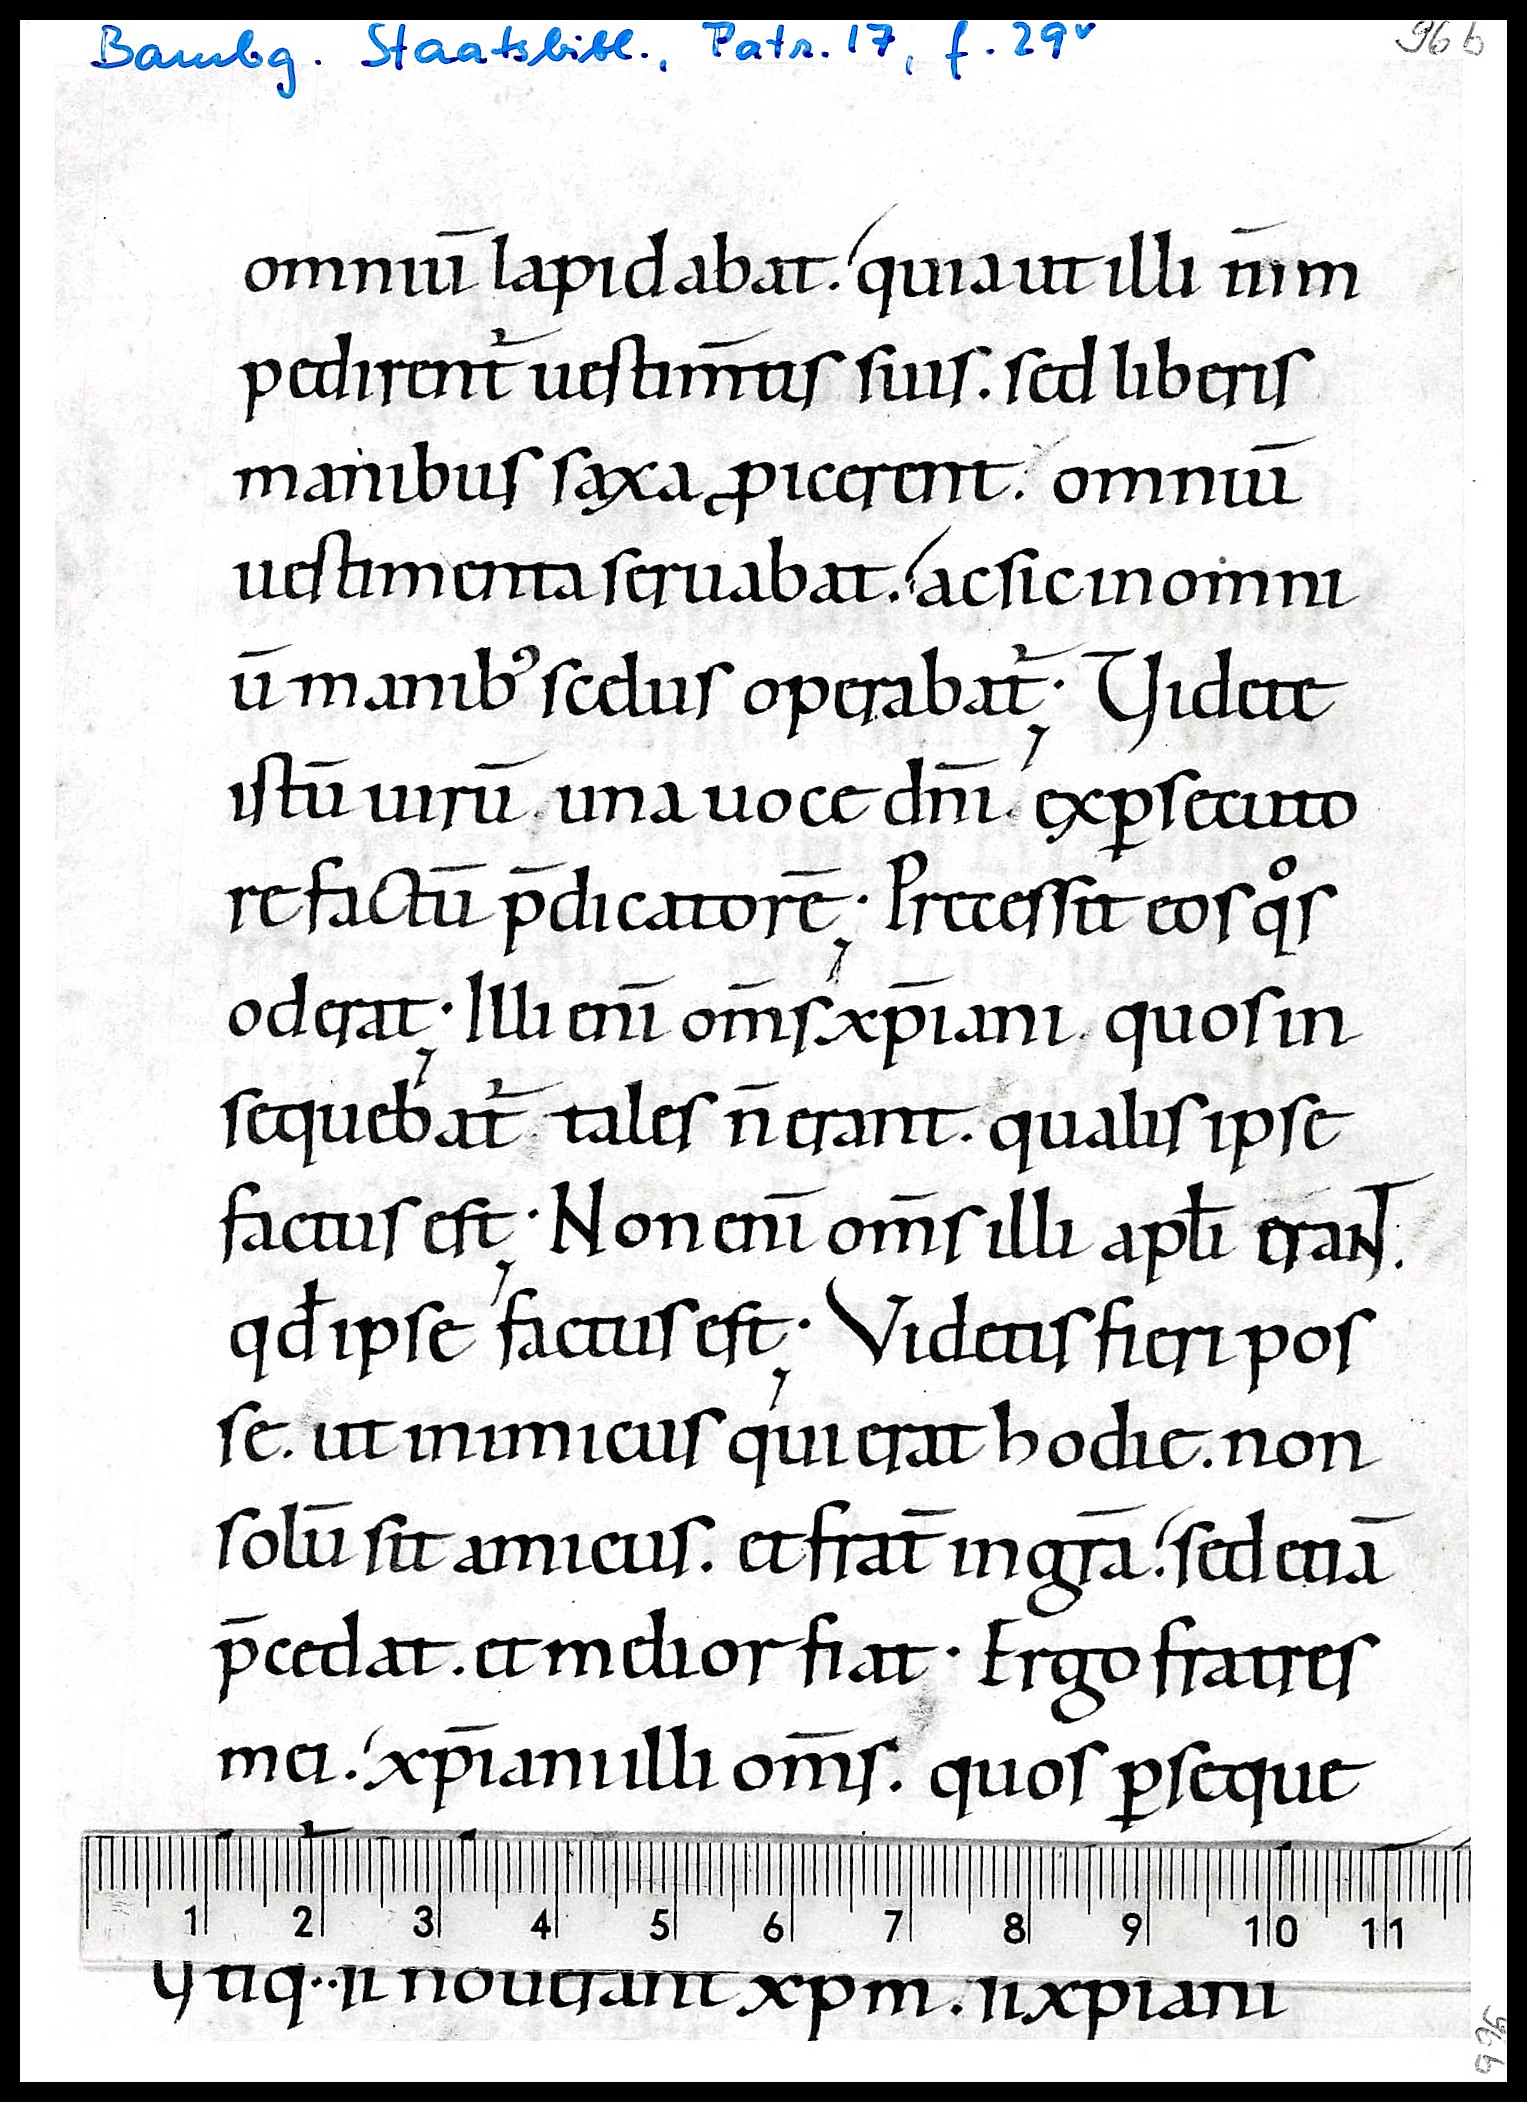 Bambg. Staatsbibl., Patr. 17, f. 29v
96 b
omniū lapidabat. quia ut illi n̄ im
pedirent᷑ uestim̄tis suis. sed liberis
manibus saxa ꝓicerent. omniū
uestimenta seruabat. ac sic in omni
ū manibꝰ sęuus operabat᷑; Videte
istū uirū. una uoce dn̄i. ex ꝑsecuto
re factū p̄dicatorē; Precessit eos qͦs
oderat; Illi eni̅ om̄s xp̄iani. quos in
sequebat᷑ tales n̄ erant. qualis ipse
factus est; Non eni̅ om̄s illi apłi erant.
qđ ipse factus est; Videtis fieri pos
se. ut inimicus qui erat hodie. non
solū sit amicus. et frat̄ in gr̄a. sed etiā
p̄cedat. et melior fiat. Ergo fratres
mei. xp̄iani illi om̄s. quos ꝑseque
1 2 3 4 5 6 7 8 9 10 11
nouerant xpm. n xpiani
96 b